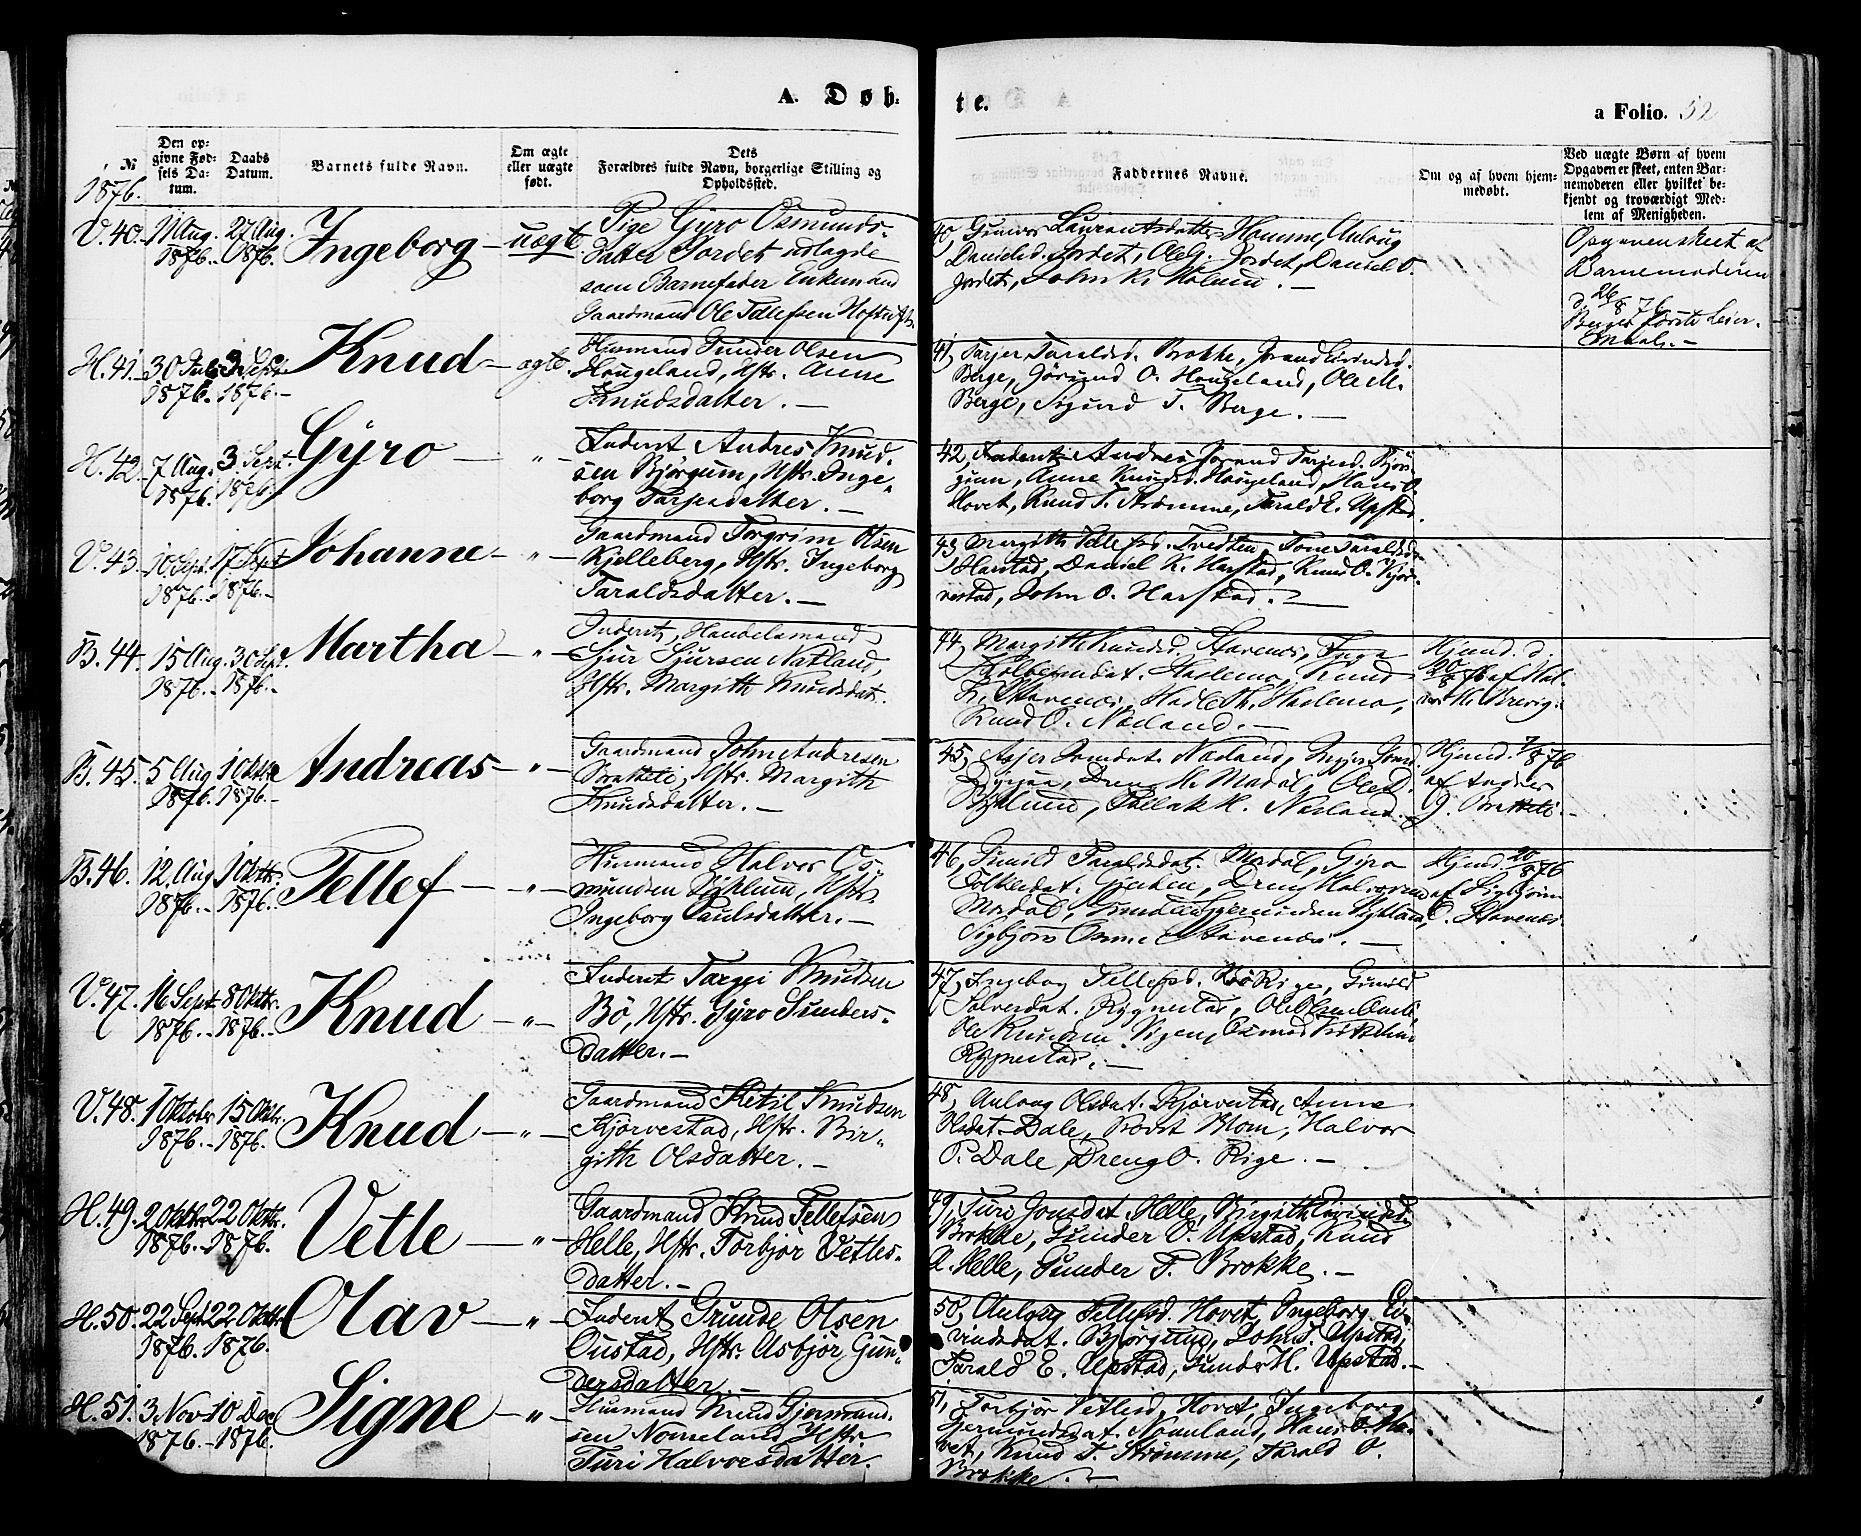 A. Døb-
te.
a Folio. 52
No
1876.
Den op-
givne Fød-
sels Da-
tum.
Daabs
Datum.
Barnets fulde Navn.
Om ægte
eller uægte
født.
Dets
Forældres fulde Navn, borgerlige Stilling og
Opholdssted.
Faddernes Navne.
Om og af hvem hjem-
medøbt.
Ved uægte Børn af hvem
Opgaven er skeet, enten Bar-
nemoderen eller hvilket be-
kjendt og troværdigt Med-
lem af Menigheden.
V. 40. 11 Aug. 1876. 27 Aug. 1876. Ingeborg – uægte
Pige Gyro Osmunds-
datter Jordet udlagde
som Barnefader Enkemand
Gaardmand Ole Tellefsen
40, Gunvor Laurantsdatter Homme, Aulaug
Danielsd. Jordet, Ole G. Jordet, Daniel O.
Jordet, John K.
Opgaven skeet af
Barnemoderen
d. 26/8 76
Begges første Leier-
maal. –
H. 41. 30 Juli 1876. 3 Sept. 1876. Knud – ægte.
Husmand Gunder Olsen
Haugeland, Hstr. Anne
Knudsdatter. –
41, Tarjer Taraldsd. Brokke, Jorand Eivindsd.
Berge, Jörund O. Haugeland, Ole M.
Berge, Sigurd T. Berge. –
H. 42. 7 Aug. 1876. 3 Sept. 1876. Gyro – " –
Inderst Andres Knud-
sen Bjørgum, Hstr. Inge-
borg Tarjesdatter. –
42, Inderst Andres Jorand Tarjesd. Bjør-
gum, Anne Knudsd. Haugeland, Hans O.
Hovet, Knud T. Strømme, Tarald E. Upstad.
V. 43. 10 Sept. 1876. 17 Sept. 1876. Johanne – " –
Gaardmand Torgrim Olsen
Kjelleberg, Hstr. Ingeborg
Taraldsdatter. –
43, Margith Tellefsd. Tvedten, Tone Taraldsd.
Harstad, Daniel K. Harstad, Knud O. Kjør-
vestad, John O. Harstad. –
B. 44. 15 Aug. 1876. 30 Sept. 1876. Martha – " –
Inderst, Handelsmand
Sjur Sjursen Natland,
Hstr. Margith Knudsdat.
44, Margith Knudsd. Stavenes, Inga
Hallvardat. Haslemo, Knud
K. Stavenes, Hadle Th. Haslemo,
Knud O. Næsland. –
Hjemd. d.
20/8 76 af Hal-
vor K. Brevig.
B. 45. 5 Aug 1876. 1 Oktbr 1876. Andreas – " –
Gaardmand John Andresen
Bratteli, Hstr. Margith
Knudsdatter. –
45, Asjer Jonsdat. Næsland,
Ole D.
Næsland. –
Hjemd. 7/8 76
af Andres
J. Bratteli. –
B. 46. 12 Aug 1876. 1 Oktbr. 1876. Tellef – " –
Husmand Halvor Os-
mundsen Hstr.
Ingeborg Paulsdatter. –
46, Gunild Taraldsdat. Modal, Gyro
Folkedat. Dreng Halvorsen
Modal,
Sigbjørn Osme Stavenes. –
Hjemd. 20/8 76
af Sigbjørn
O. Stavenes.
V. 47. 16 Sept. 1876. 8 Oktbr. 1876. Knud – " –
Inderst Targei Knudsen
Bö, Hstr. Gyro Gunders-
datter. –
47, Ingebog Tellefsd. Rige, Gunild
Salvesdat. Rygnestad, Ole Olsen
Ole Knudsen
Rygnestad. –
V. 48. 1 Oktober 1876. 15 Oktbr. 1876. Knud – " –
Gaardmand Ketil Knudsen
Kjørvestad, Hstr. Bir-
gith Olsdatter. –
48, Aulaug Olsdat. Kjørvestad, Anne
Olsdat. Dale, Blom, Halvor
P. Dale, Dreng O. Rige. –
H. 49. 2 Oktbr. 1876. 22 Oktbr. 1876. Vetle – " –
Gaardmand Knud Tellefsen
Helle, Hstr. Torbjør Vetles-
datter. –
49, Turi Jonsdat Helle, Birgith Eivindsd.
Brokke, Gunder O. Upstad, Knud
R. Helle, Gunder T. Brokke. –
H. 50. 22 Sept. 1876. 22 Oktbr. 1876. Olav – " –
Inderst Grunde Olsen
Oustad, Hstr. Asbjør Gun-
dersdatter. –
50, Aulaug Tellefsd. Hovet, Ingeborg Ei-
vindsdat. Bjørgum, John T. Upstad,
Tarald E. Upstad, Gunder H. Upstad. –
H. 51. 3 Nov. 1876. 10 Dec 1876. Signe – " –
Husmand Knud Gjermund-
sen Nomeland Hstr.
Turi Halvorsdatter.
51, Torbjør Vetlesd. Hovet, Ingeborg
Gjermundsdat. Nomeland, Hans O. Ho-
vet, Knud T. Strømme, Tarald O.
Brokke. –